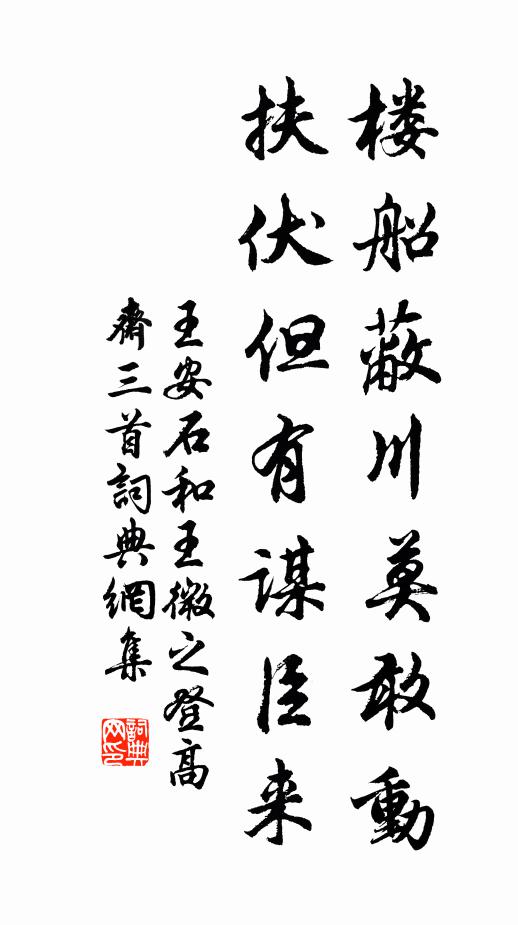 楼船蔽川莫敢動
扶伏但有謀臣来
王安石和王微之登高
齋三首詞典網集
詞典網印